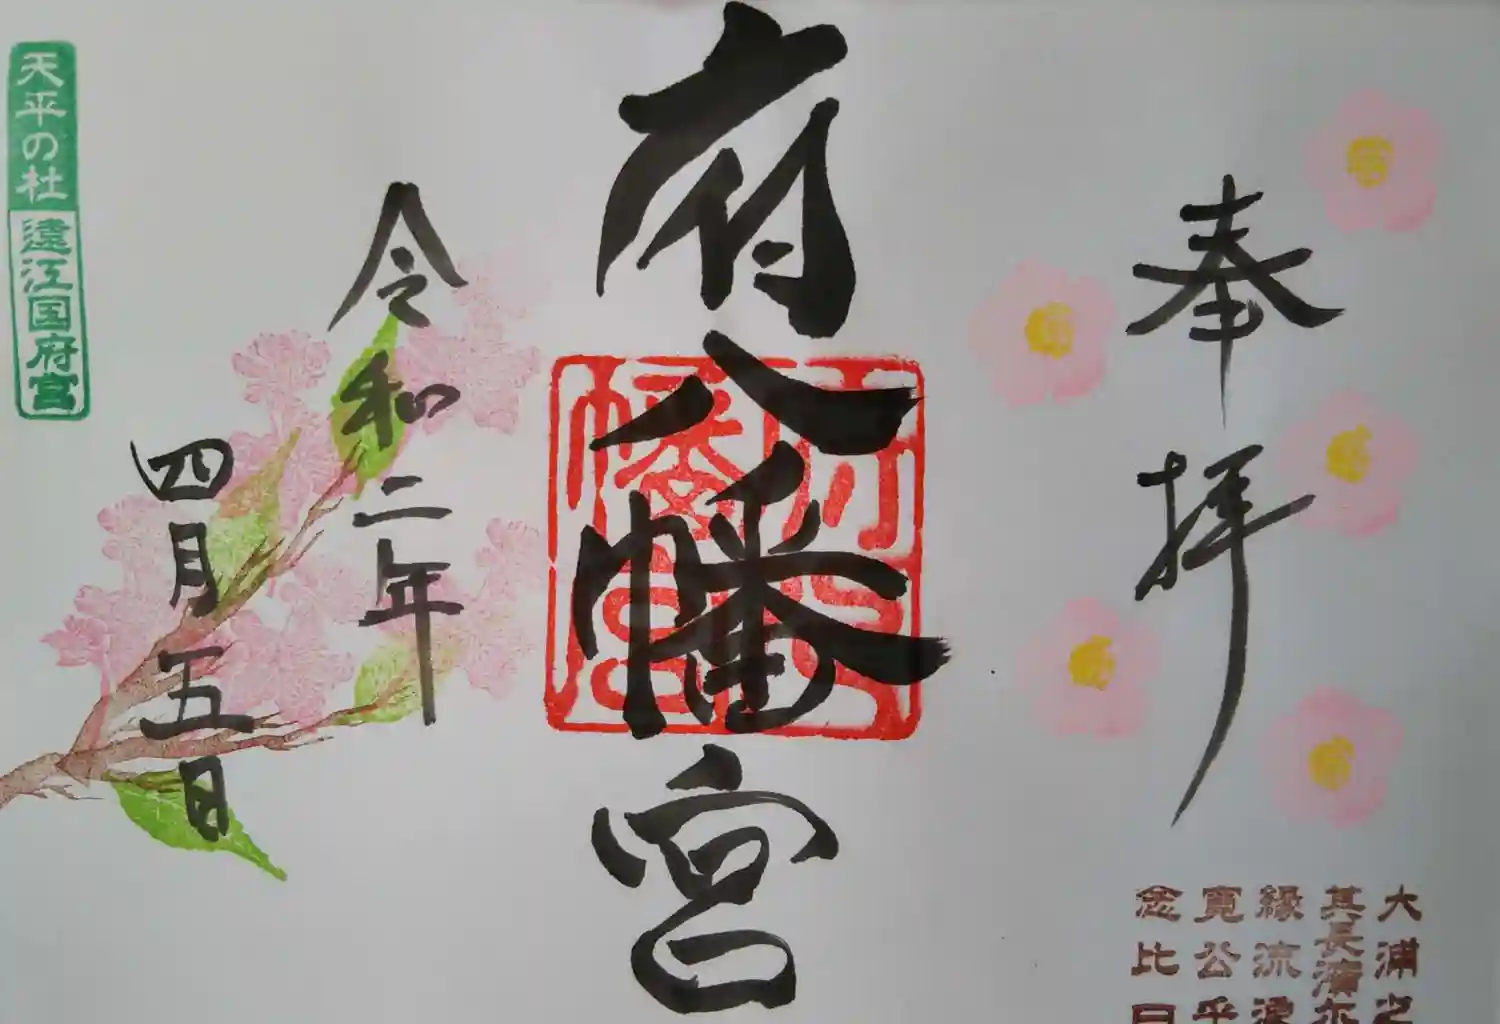 奉拝
大浦之
其長濱尓
縁流浪
寛公乎
念比日
府八幡宮
府八幡宮
令和二年
四月五日
天平の杜
遠江国府宮